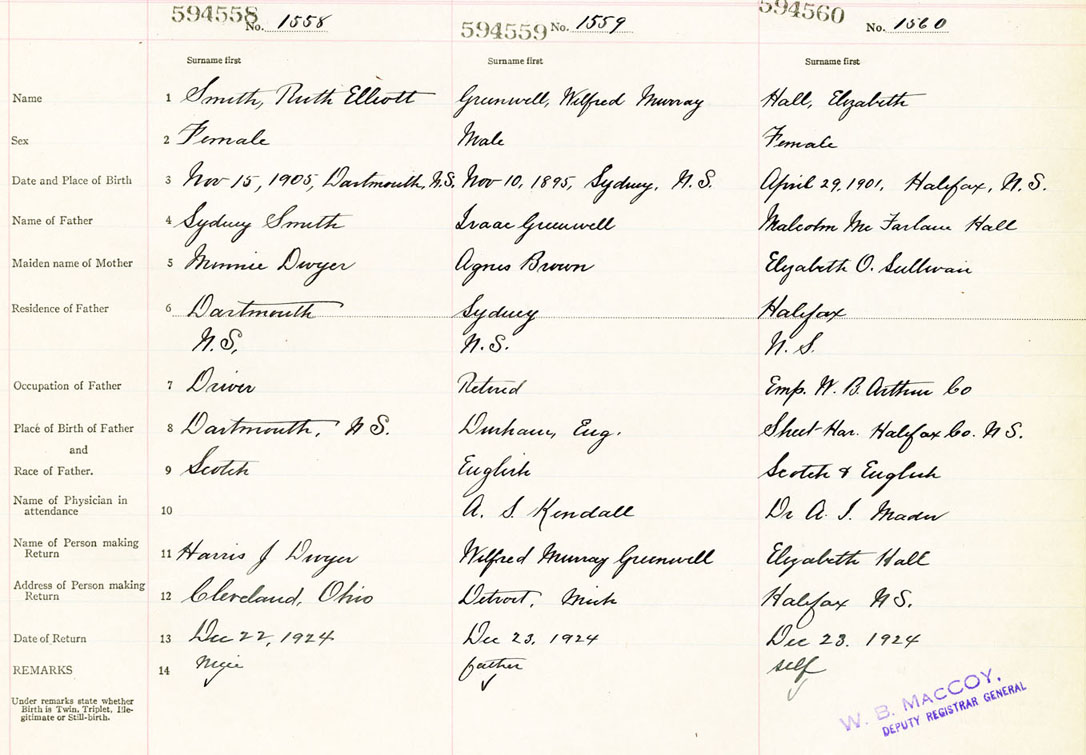 594558 No. 1558 594559 No. 1559 594560 No. 1560
Surname first Surname first Surname first
Name 1 Smith, Ruth Elliott Greenwell, Wilfred Murray Hall, Elizabeth
Sex 2 Female Male Female
Date and Place of Birth 3 Nov 15, 1905, Dartmouth, N.S. Nov 10, 1895, Sydney, N.S. April 29, 1901, Halifax, N.S.
Name of Father 4 Sydney Smith Isaac Greenwell Malcolm Mc Farlane Hall
Maiden name of Mother 5 Minnie Dwyer Agnes Brown Elizabeth O. Sullivan
Residence of Father 6 Dartmouth Sydney Halifax
N.S. N.S. N.S.
Occupation of Father 7 Driver Retired Emp. W. B. Arthur Co
Place of Birth of Father 8 Dartmouth, N.S. Durham, Eng. Sheet Har. Halifax Co. N.S.
and
Race of Father. 9 Scotch English Scotch & English
Name of Physician in
attendance 10 A. S. Kendall Dr A. I. Mader
Name of Person making
Return 11 Harris J Dwyer Wilfred Murray Greenwell Elizabeth Hall
Address of Person making
Return 12 Cleveland, Ohio Detroit, Mich Halifax N.S.
Date of Return 13 Dec 22, 1924 Dec 23, 1924 Dec 23. 1924
REMARKS 14 father self
Under remarks state whether
Birth is Twin, Triplet, Ille-
gitimate or Still-birth.
W. B. MACCOY,
DEPUTY REGISTRAR GENERAL